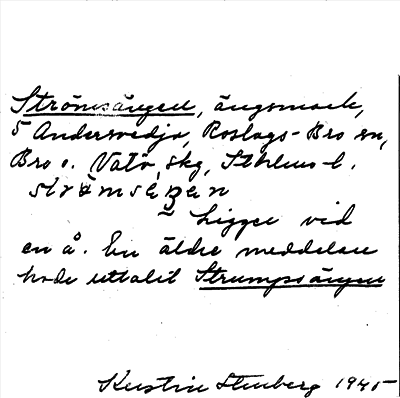 Strömsängen, ängsmark,
5 Andersvedja, Roslags-Bro sn,
Bro o. Vätö skg, Sthlms l.
strömsäŋen
Ligger vid
en å. En äldre meddelare
hade uttalet Strumpsängen
Kerstin Stenberg 1945